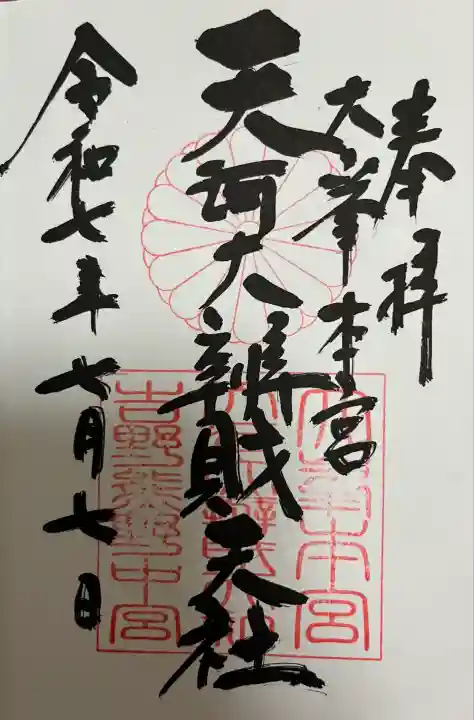 奉拝
大峯本宮
天河大辨財天社
令和七年七月七日
大峯本宮
吉野熊野中宮